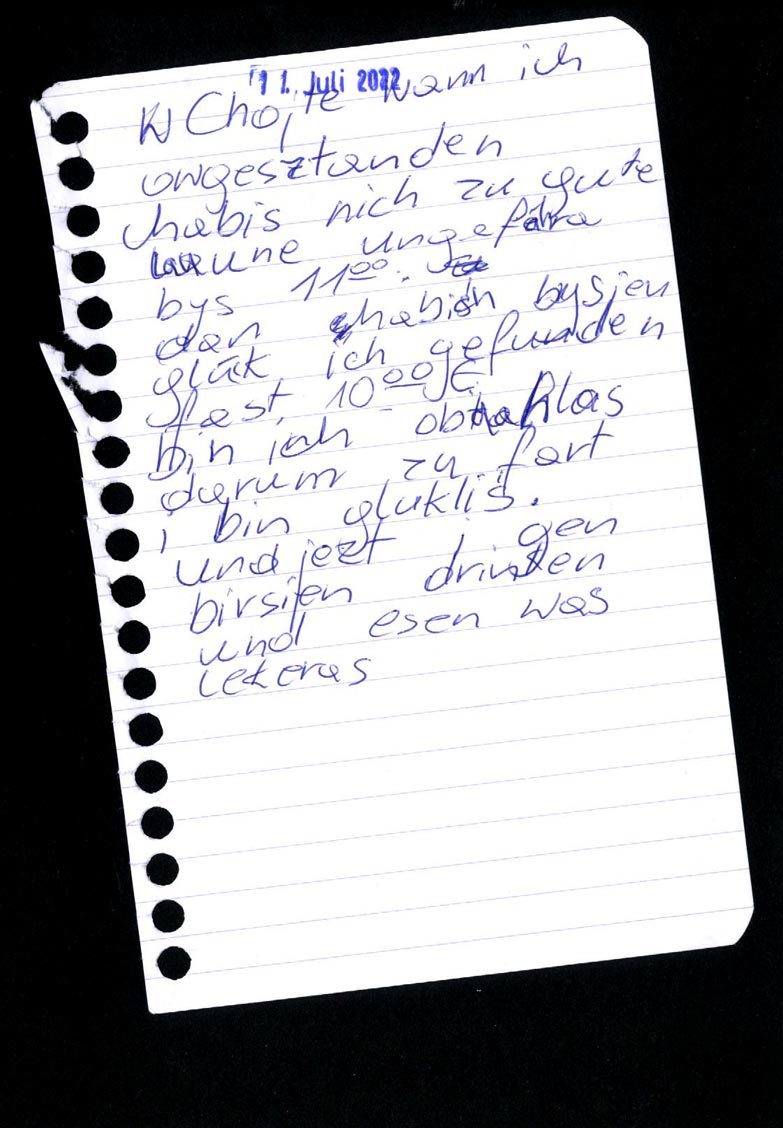 11. Juli 2022
Chojte wann ich
ongesztanden
habis nich zu gute
laune ungefähra
bys 11⁰⁰.
dan habich bysjen
glük ich gefunden
fast 10⁰⁰ €
bin ich obtahlas
darum zu fort
i bin glüklis.
und jezt i gen
birsjen drinken
und esen was
lekeras